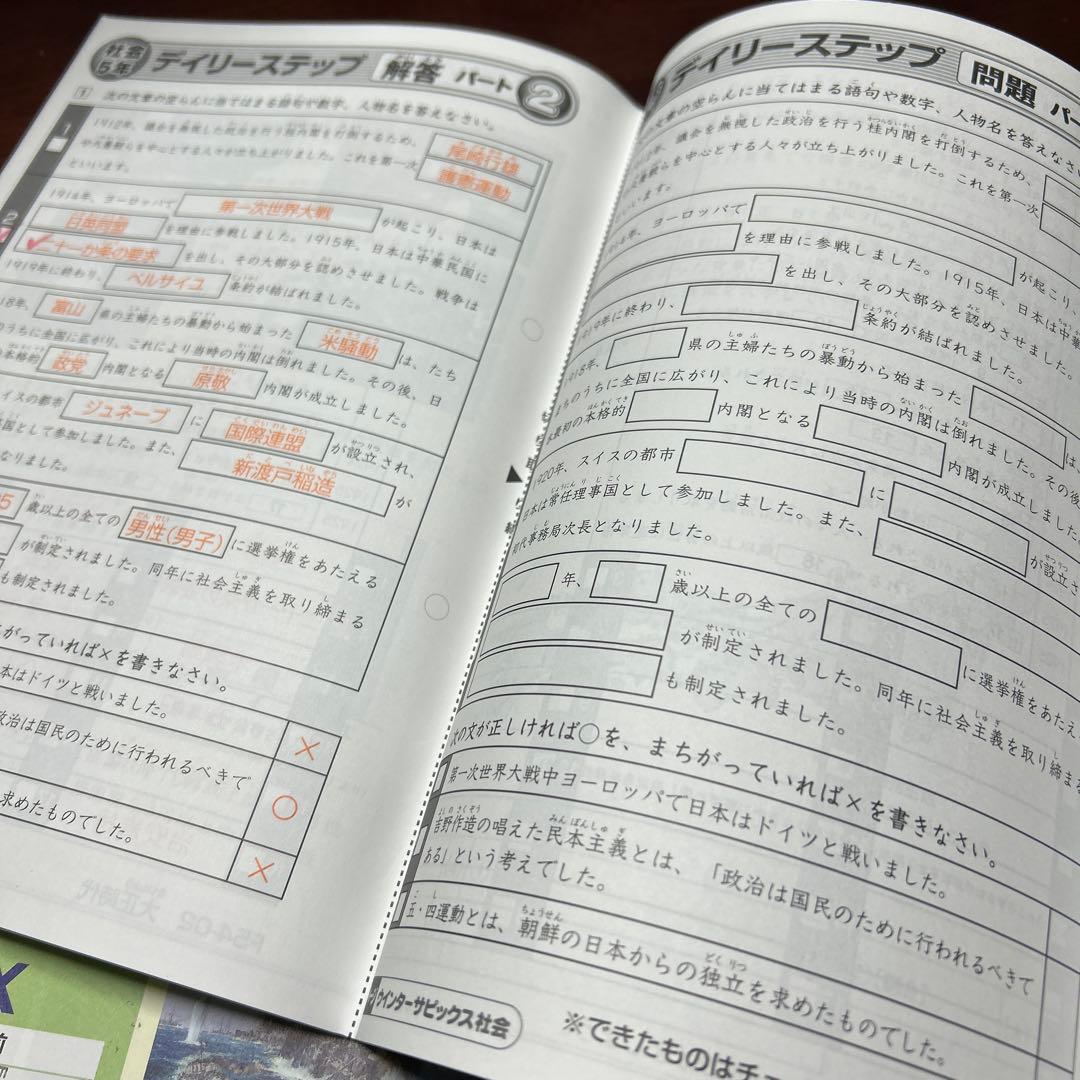 社会
5年
デイリーステップ 解答 パート 2
1 次の文章の空らんに当てはまる語句や数字、人物名を答えなさい。
1912年、議会を無視した政治を行う桂内閣を打倒するため、尾崎行雄
や犬養毅らを中心とする人々が立ち上がりました。これを第一次 護憲運動
といいます。
1914年、ヨーロッパで 第一次世界大戦 が起こり、日本は
日英同盟 を理由に参戦しました。1915年、日本は中華民国に
十一か条の要求 を出し、その大部分を認めさせました。戦争は
1919年に終わり、 ベルサイユ 条約が結ばれました。
18年、 富山 県の主婦たちの暴動から始まった 米騒動 は、たち
のうちに全国に広がり、これにより当時の内閣は倒れました。その後、日
の本格的 政党 内閣となる 原敬 内閣が成立しました。
イスの都市 ジュネーブ に 国際連盟 が設立され、
国として参加しました。また、 新渡戸稲造 が
なりました。
5 歳以上の全ての 男性(男子) に選挙権をあたえる
が制定されました。同年に社会主義を取り締まる
も制定されました。
がっていれば×を書きなさい。
本はドイツと戦いました。 ×
政治は国民のために行われるべきで ○
求めたものでした。 ×
デイリーステップ 問題 パー
の空らんに当てはまる語句や数字、人物名を答えなさい
議会を無視した政治を行う桂内閣を打倒するため、
らを中心とする人々が立ち上がりました。これを第一次
います。
ヨーロッパで が起こり、
を理由に参戦しました。1915年、日本は中華
を出し、その大部分を認めさせました。
919年に終わり、 条約が結ばれました。
918年、 県の主婦たちの暴動から始まった は、
まちのうちに全国に広がり、これにより当時の内閣は倒れました。その後
本最初の本格的 内閣となる 内閣が成立しました
1920年、スイスの都市 に が設立さ
日本は常任理事国として参加しました。また、
初代事務局次長となりました。
年、 歳以上の全ての に選挙権をあたえ
が制定されました。同年に社会主義を取り締まる
も制定されました。
次の文が正しければ○を、まちがっていれば×を書きなさい。
第一次世界大戦中ヨーロッパで日本はドイツと戦いました。
吉野作造の唱えた民本主義とは、「政治は国民のために行われるべきで
ある」という考えでした。
五・四運動とは、朝鮮の日本からの独立を求めたものでした。
ウインターサピックス社会
※できたものはチ
X